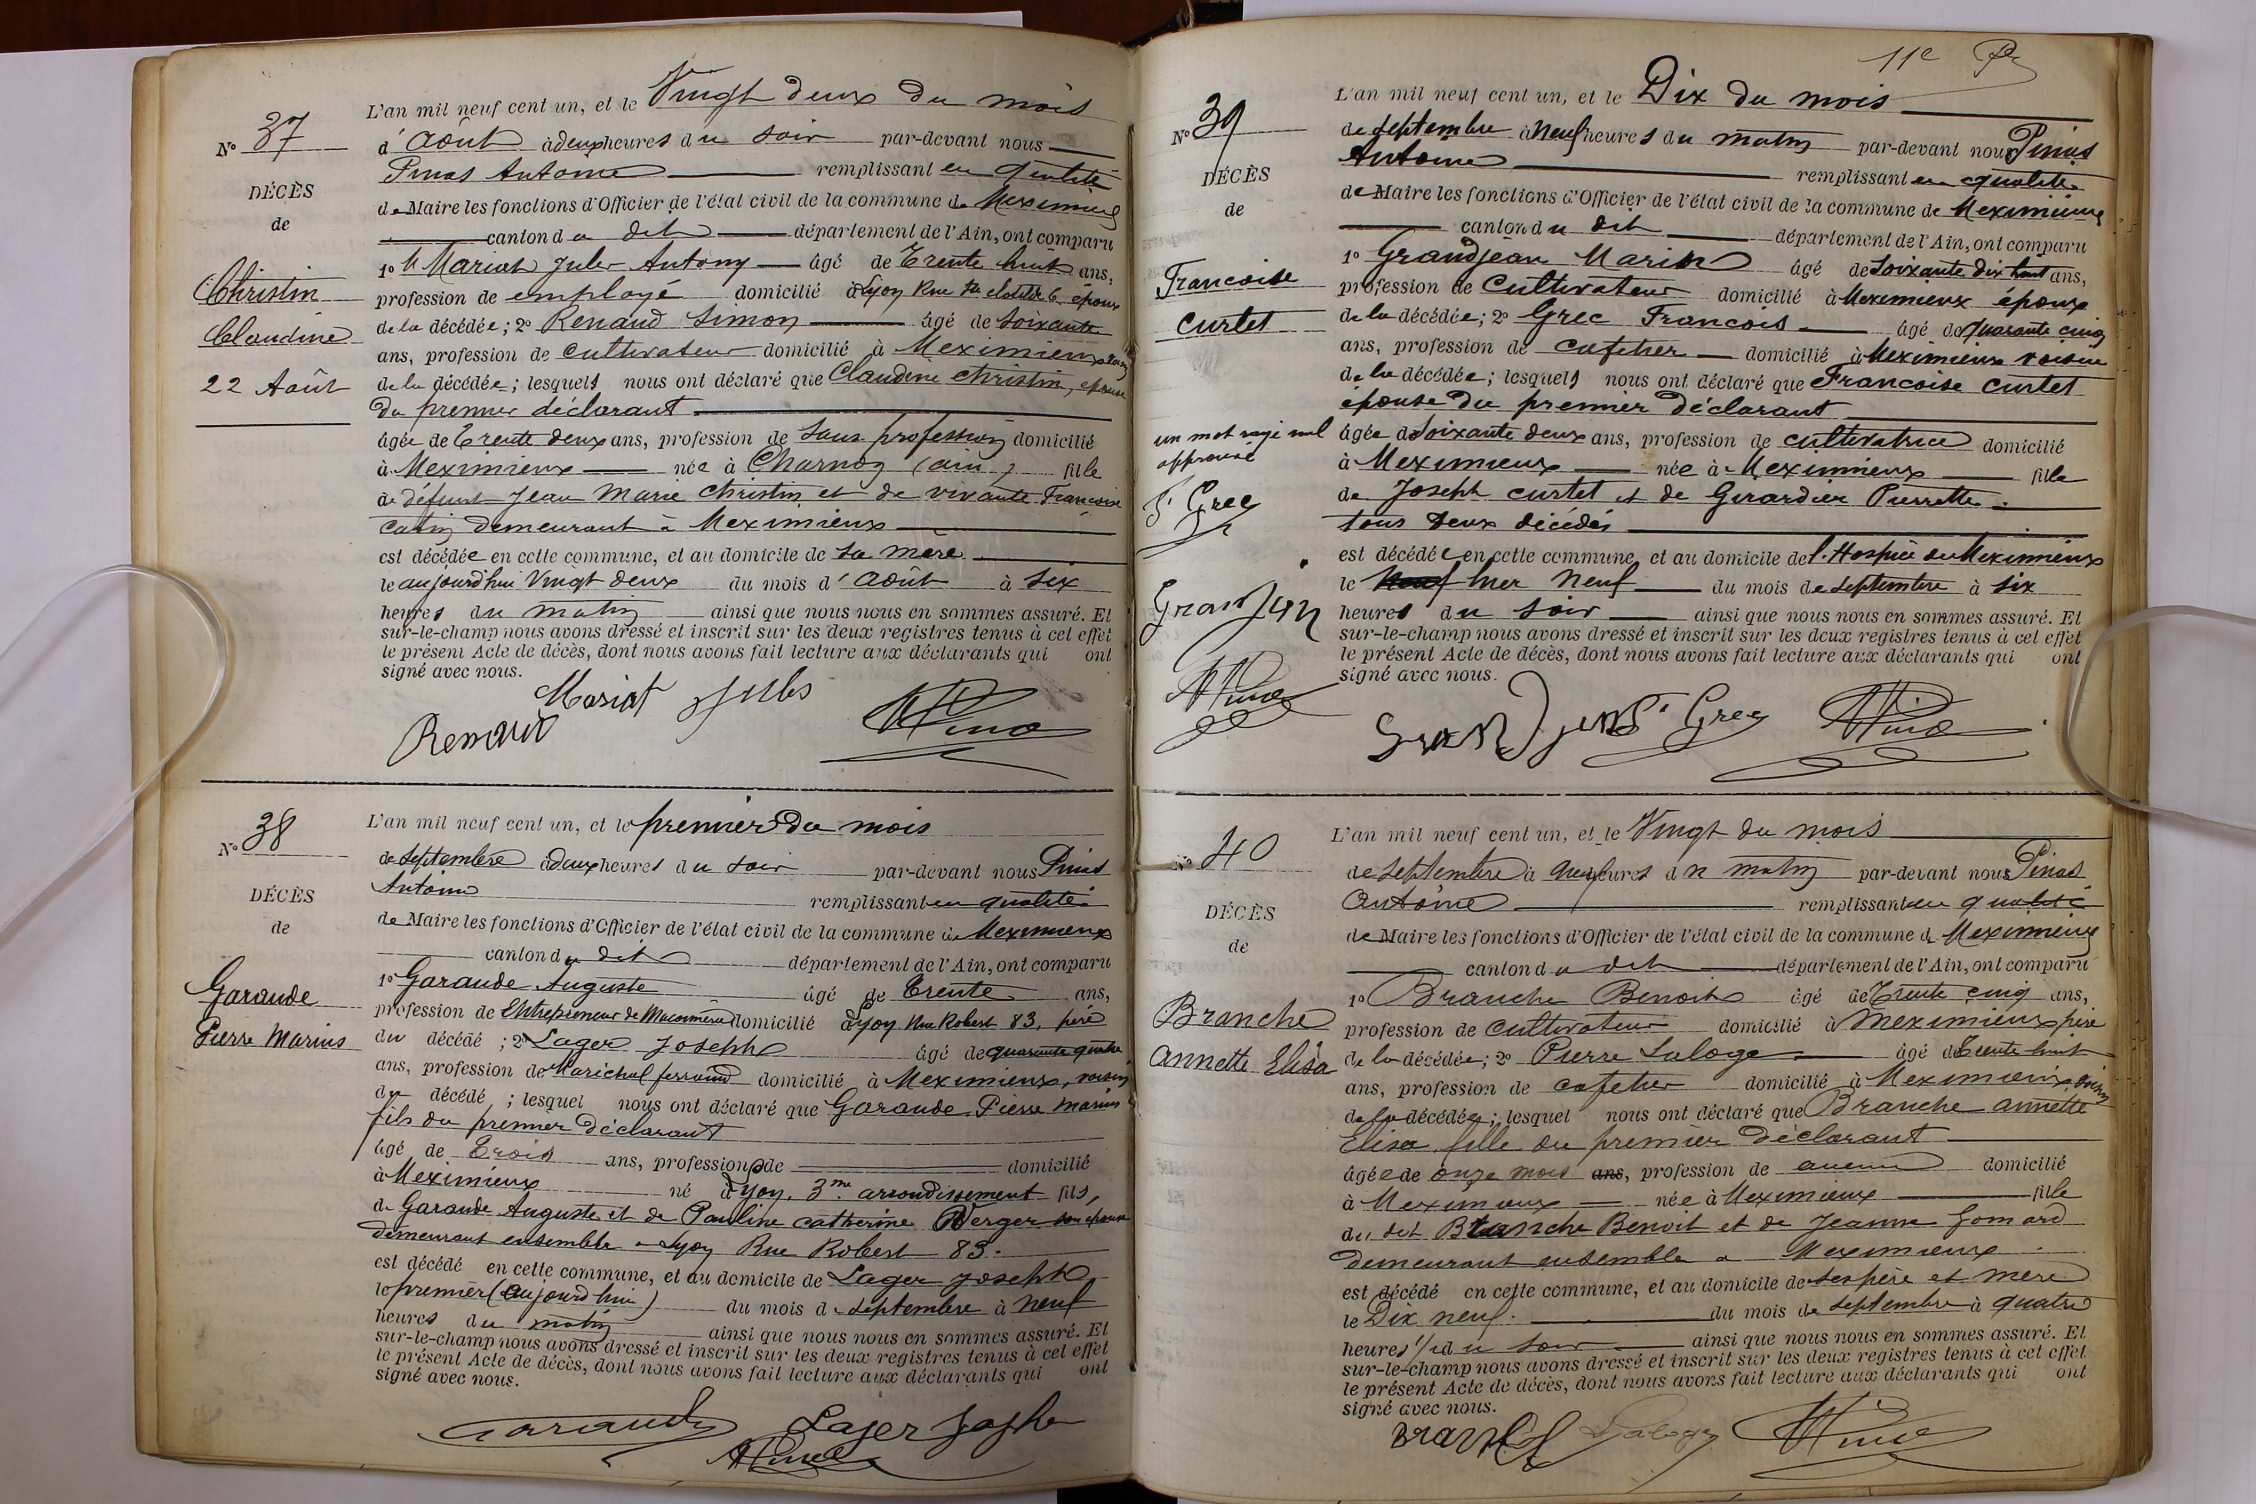 L'an mil neuf cent un, et le Vingt deux du mois
No 37
d'Août à deux heures du soir par-devant nous
Pinas Antoine remplissant en qualité
DÉCÈS
de Maire les fonctions d'Officier de l'état civil de la commune de Meximieux
de
canton du dit département de l'Ain, ont comparu
1o Mariat Jules Antony âgé de Trente huit ans,
Christin
profession de employé domicilié à Lyon Rue Ste clotilde 6, époux
de la décédée; 2o Renaud Simon âgé de soixante
Claudine
ans, profession de cultivateur domicilié à Meximieux voisin
22 Août
de la décédée; lesquels nous ont déclaré que Claudine Christin, épouse
du premier déclarant
âgée de Trente deux ans, profession de sans profession domicilié
à Meximieux née à Charnoz (ain) fille
de défunt Jean Marie Christin et de vivante Françoise
demeurant à Meximieux
est décédée en cette commune, et au domicile de sa mère
le aujourd'hui Vingt deux du mois d'Août à six
heures du matin ainsi que nous nous en sommes assuré. Et
sur-le-champ nous avons dressé et inscrit sur les deux registres tenus à cet effet
le présent Acte de décès, dont nous avons fait lecture aux déclarants qui ont
signé avec nous.
Mariat Jules
Renaud APinas
L'an mil neuf cent un, et le premier du mois
No 38
de septembre à deux heures du soir par-devant nous Pinas
Antoine remplissant en qualité
DÉCÈS
de Maire les fonctions d'Officier de l'état civil de la commune de Meximieux
de
canton du dit département de l'Ain, ont comparu
1o Garaude Auguste âgé de Trente ans,
Garaude
profession de Entrepreneur de Maconnerie domicilié à Lyon Rue Robert 83, père
Pierre Marius
du décédé; 2o Lager Joseph âgé de quarante quatre
ans, profession de Maréchal ferrand domicilié à Meximieux, voisin
du décédé; lesquel nous ont déclaré que Garaude Pierre Marius
fils du premier déclarant
âgé de Trois ans, profession de domicilié
à Meximieux né à Lyon. 3me arrondissement fils,
de Garaude Auguste et de Pauline catherine Verger son épouse
demeurant ensemble à Lyon Rue Robert 83.
est décédé en cette commune, et au domicile de Lager Joseph
le premier (aujourd'hui) du mois de septembre à neuf
heures du matin ainsi que nous nous en sommes assuré. Et
sur-le-champ nous avons dressé et inscrit sur les deux registres tenus à cet effet
le présent Acte de décès, dont nous avons fait lecture aux déclarants qui ont
signé avec nous.
Garaude Lager Joseph
APinas
11e
L'an mil neuf cent un, et le Dix du mois
No 39
de septembre à Neuf heures du matin par-devant nous Pinas
Antoine remplissant en qualité
DÉCÈS
de Maire les fonctions d'Officier de l'état civil de la commune de Meximieux
de
canton du dit département de l'Ain, ont comparu
1o Grandjean Marin âgé de soixante dix huit ans,
Francoise
profession de Cultivateur domicilié à Meximieux époux
Curtet
de la décédée; 2o Grec Francois âgé de quarante cinq
ans, profession de cafetier domicilié à Meximieux voisin
de la décédée; lesquels nous ont déclaré que Francoise Curtet
épouse du premier déclarant
un mot rayé nul
approuvé
âgée de soixante deux ans, profession de cultivatrice domicilié
à Meximieux née à Meximieux fille
de Joseph Curtet et de Girardier Pierrette.
F. Grec
tous deux décédés
est décédée en cette commune, et au domicile de l'Hospice de Meximieux
le Neuf hier Neuf du mois de septembre à six
Grandjan
heures du soir ainsi que nous nous en sommes assuré. Et
sur-le-champ nous avons dressé et inscrit sur les deux registres tenus à cet effet
le présent Acte de décès, dont nous avons fait lecture aux déclarants qui ont
signé avec nous.
APinas
Grandjean F. Grec APinas
L'an mil neuf cent un, et le Vingt du mois
No 40
de septembre à neuf heures du matin par-devant nous Pinas
Antoine remplissant en qualité
DÉCÈS
de Maire les fonctions d'Officier de l'état civil de la commune de Meximieux
de
canton du dit département de l'Ain, ont comparu
1o Branche Benoit âgé de Trente cinq ans,
Branche
profession de cultivateur domicilié à Meximieux père
Annette Elisa
de la décédée; 2o Pierre Laloge âgé de Trente huit
ans, profession de cafetier domicilié à Meximieux voisin
de la décédée; lesquel nous ont déclaré que Branche annette
Elisa fille du premier déclarant
âgée de onze mois ans, profession de aucune domicilié
à Meximieux née à Meximieux fille
du dit Branche Benoit et de Jeanne Gomard
demeurant ensemble a Meximieux.
est décédé en cette commune, et au domicile de ses père et mère
le Dix neuf. du mois de septembre à quatre
heures 1/2 du soir ainsi que nous nous en sommes assuré. Et
sur-le-champ nous avons dressé et inscrit sur les deux registres tenus à cet effet
le présent Acte de décès, dont nous avons fait lecture aux déclarants qui ont
signé avec nous.
Branche Laloge APinas